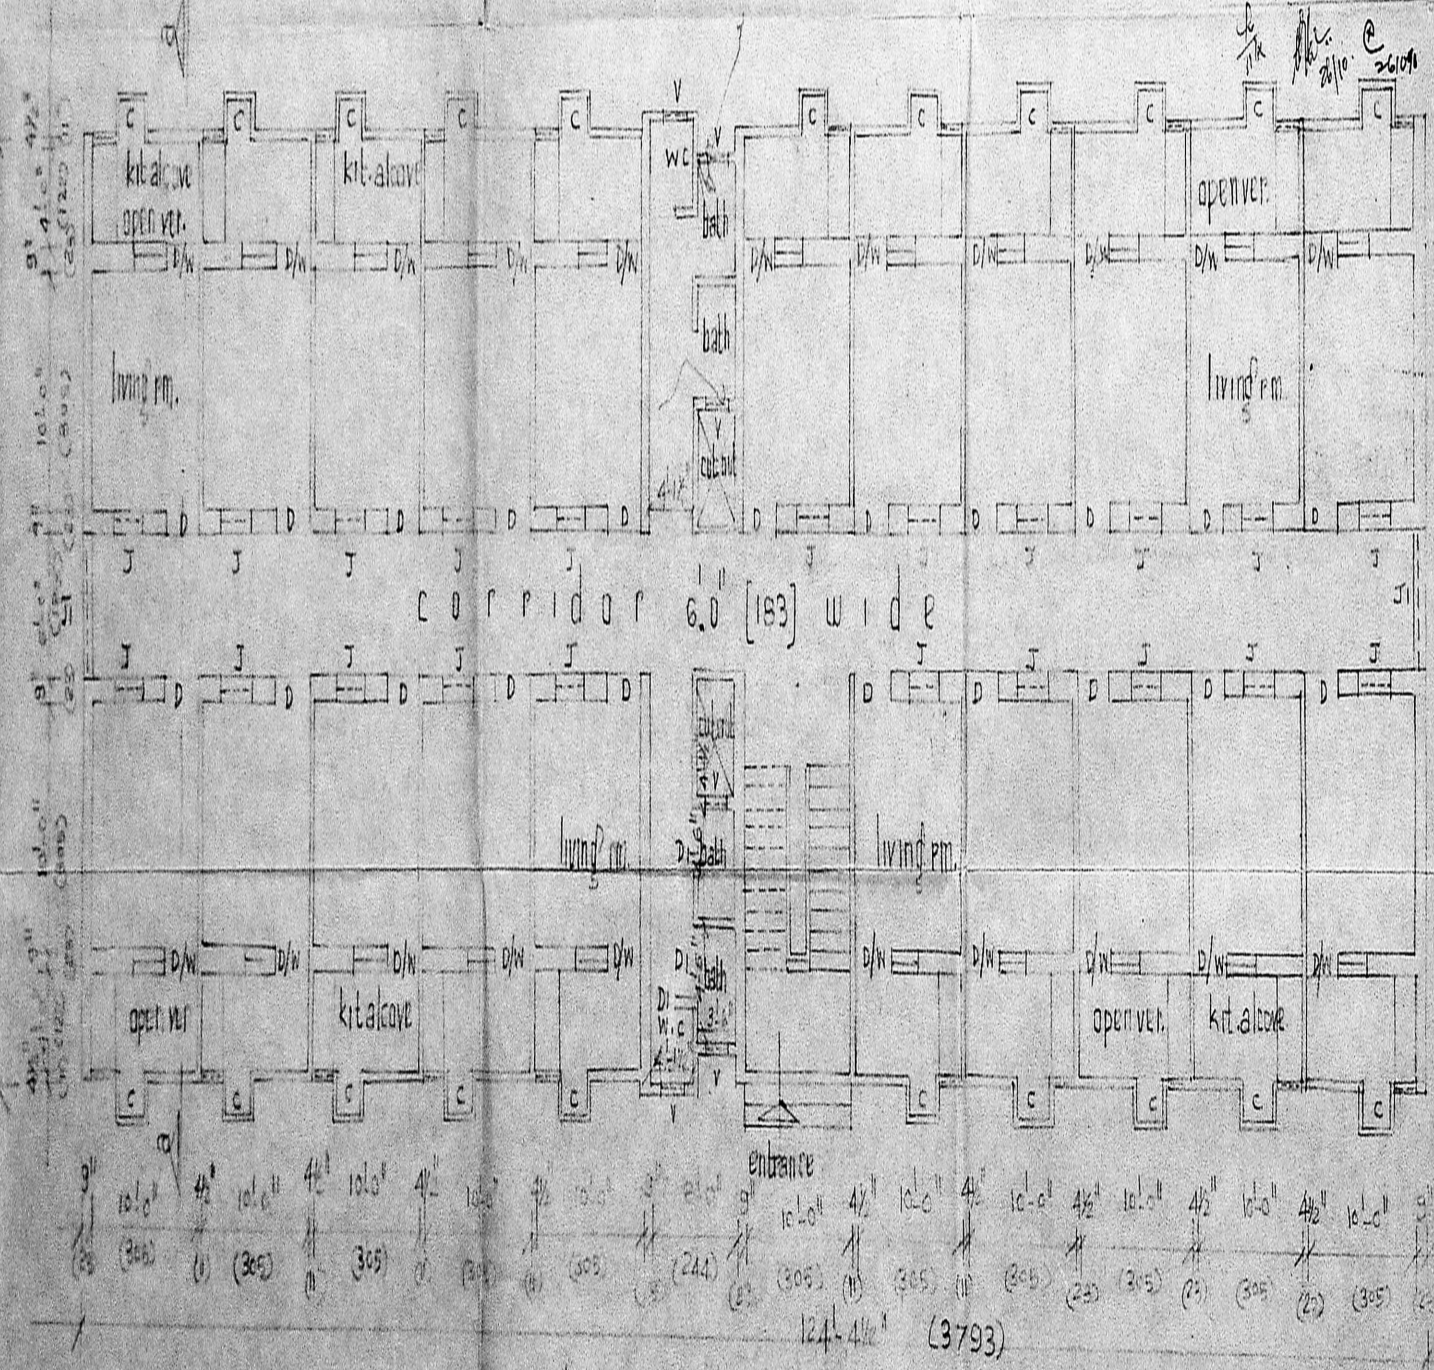 26/10.
C C C C C V C C C C C C
V
kit alcove kit.alcove WC open ver.
open ver. bath
D/W D/W D/W D/W D/W D/W D/W D/W D/W D/W D/W
bath
living rm. living rm.
V
cutout
D D D D D D D D D D D
J J J J J J J J J J J
corridor 6'.0" [183] wide J1
J J J J J J J J J J
D D D D D D D D D D
cutout
V
living rm. D1 bath living rm.
D/W D/W D/W D/W D/W D1 bath D/W D/W D/W D/W D/W
D1
open ver kit alcove W.C open ver. kit.alcove
V
C C C C C V C C C C C
entrance
9" 10'-0" 4½" 10'-0" 4½" 10'-0" 4½" 10'-0" 4½" 10'-0" 8'-0" 9" 10'-0" 4½" 10'-0" 4½" 10'-0" 4½" 10'-0" 4½" 10'-0" 4½" 10'-0" 9"
(305) (11) (305) (11) (305) (305) (244) (23) (305) (11) (305) (11) (305) (23) (305) (23) (305) (23) (305)
124'-4½" (3793)